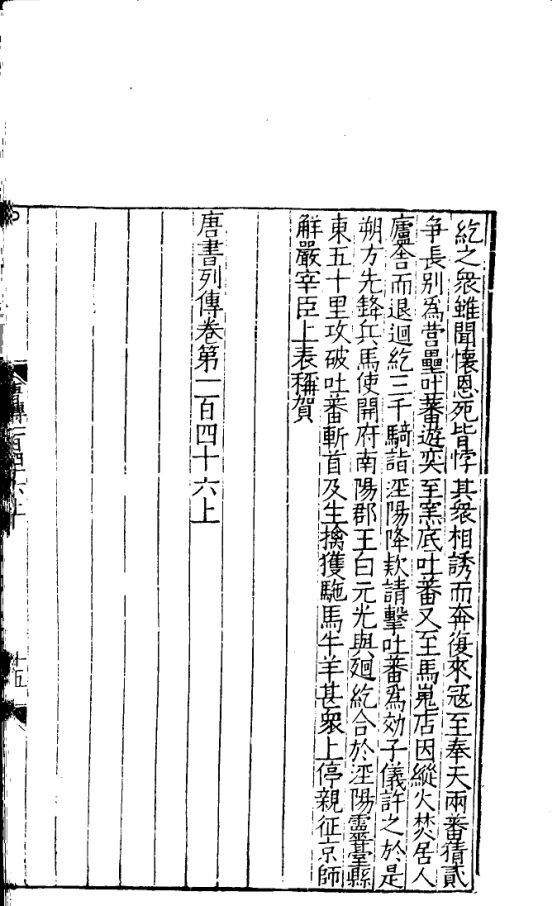 紇之衆雖聞懷恩死皆悖其衆相誘而奔復來冦至奉天兩蕃猜貳
争長别為營壘吐蕃遊奕至窯底吐蕃又至馬嵬店因縱火焚居人
廬舎而退迴紇三千騎詣涇陽降欵請擊吐蕃為効子儀許之於是
朔方先鋒兵馬使開府南陽郡王白元光與廻紇合於涇陽靈臺縣
東五十里攻破吐蕃斬首及生擒獲駞馬牛羊甚衆上停親征京師
解嚴宰臣上表稱賀
唐書列傳卷第一百四十六上
十五